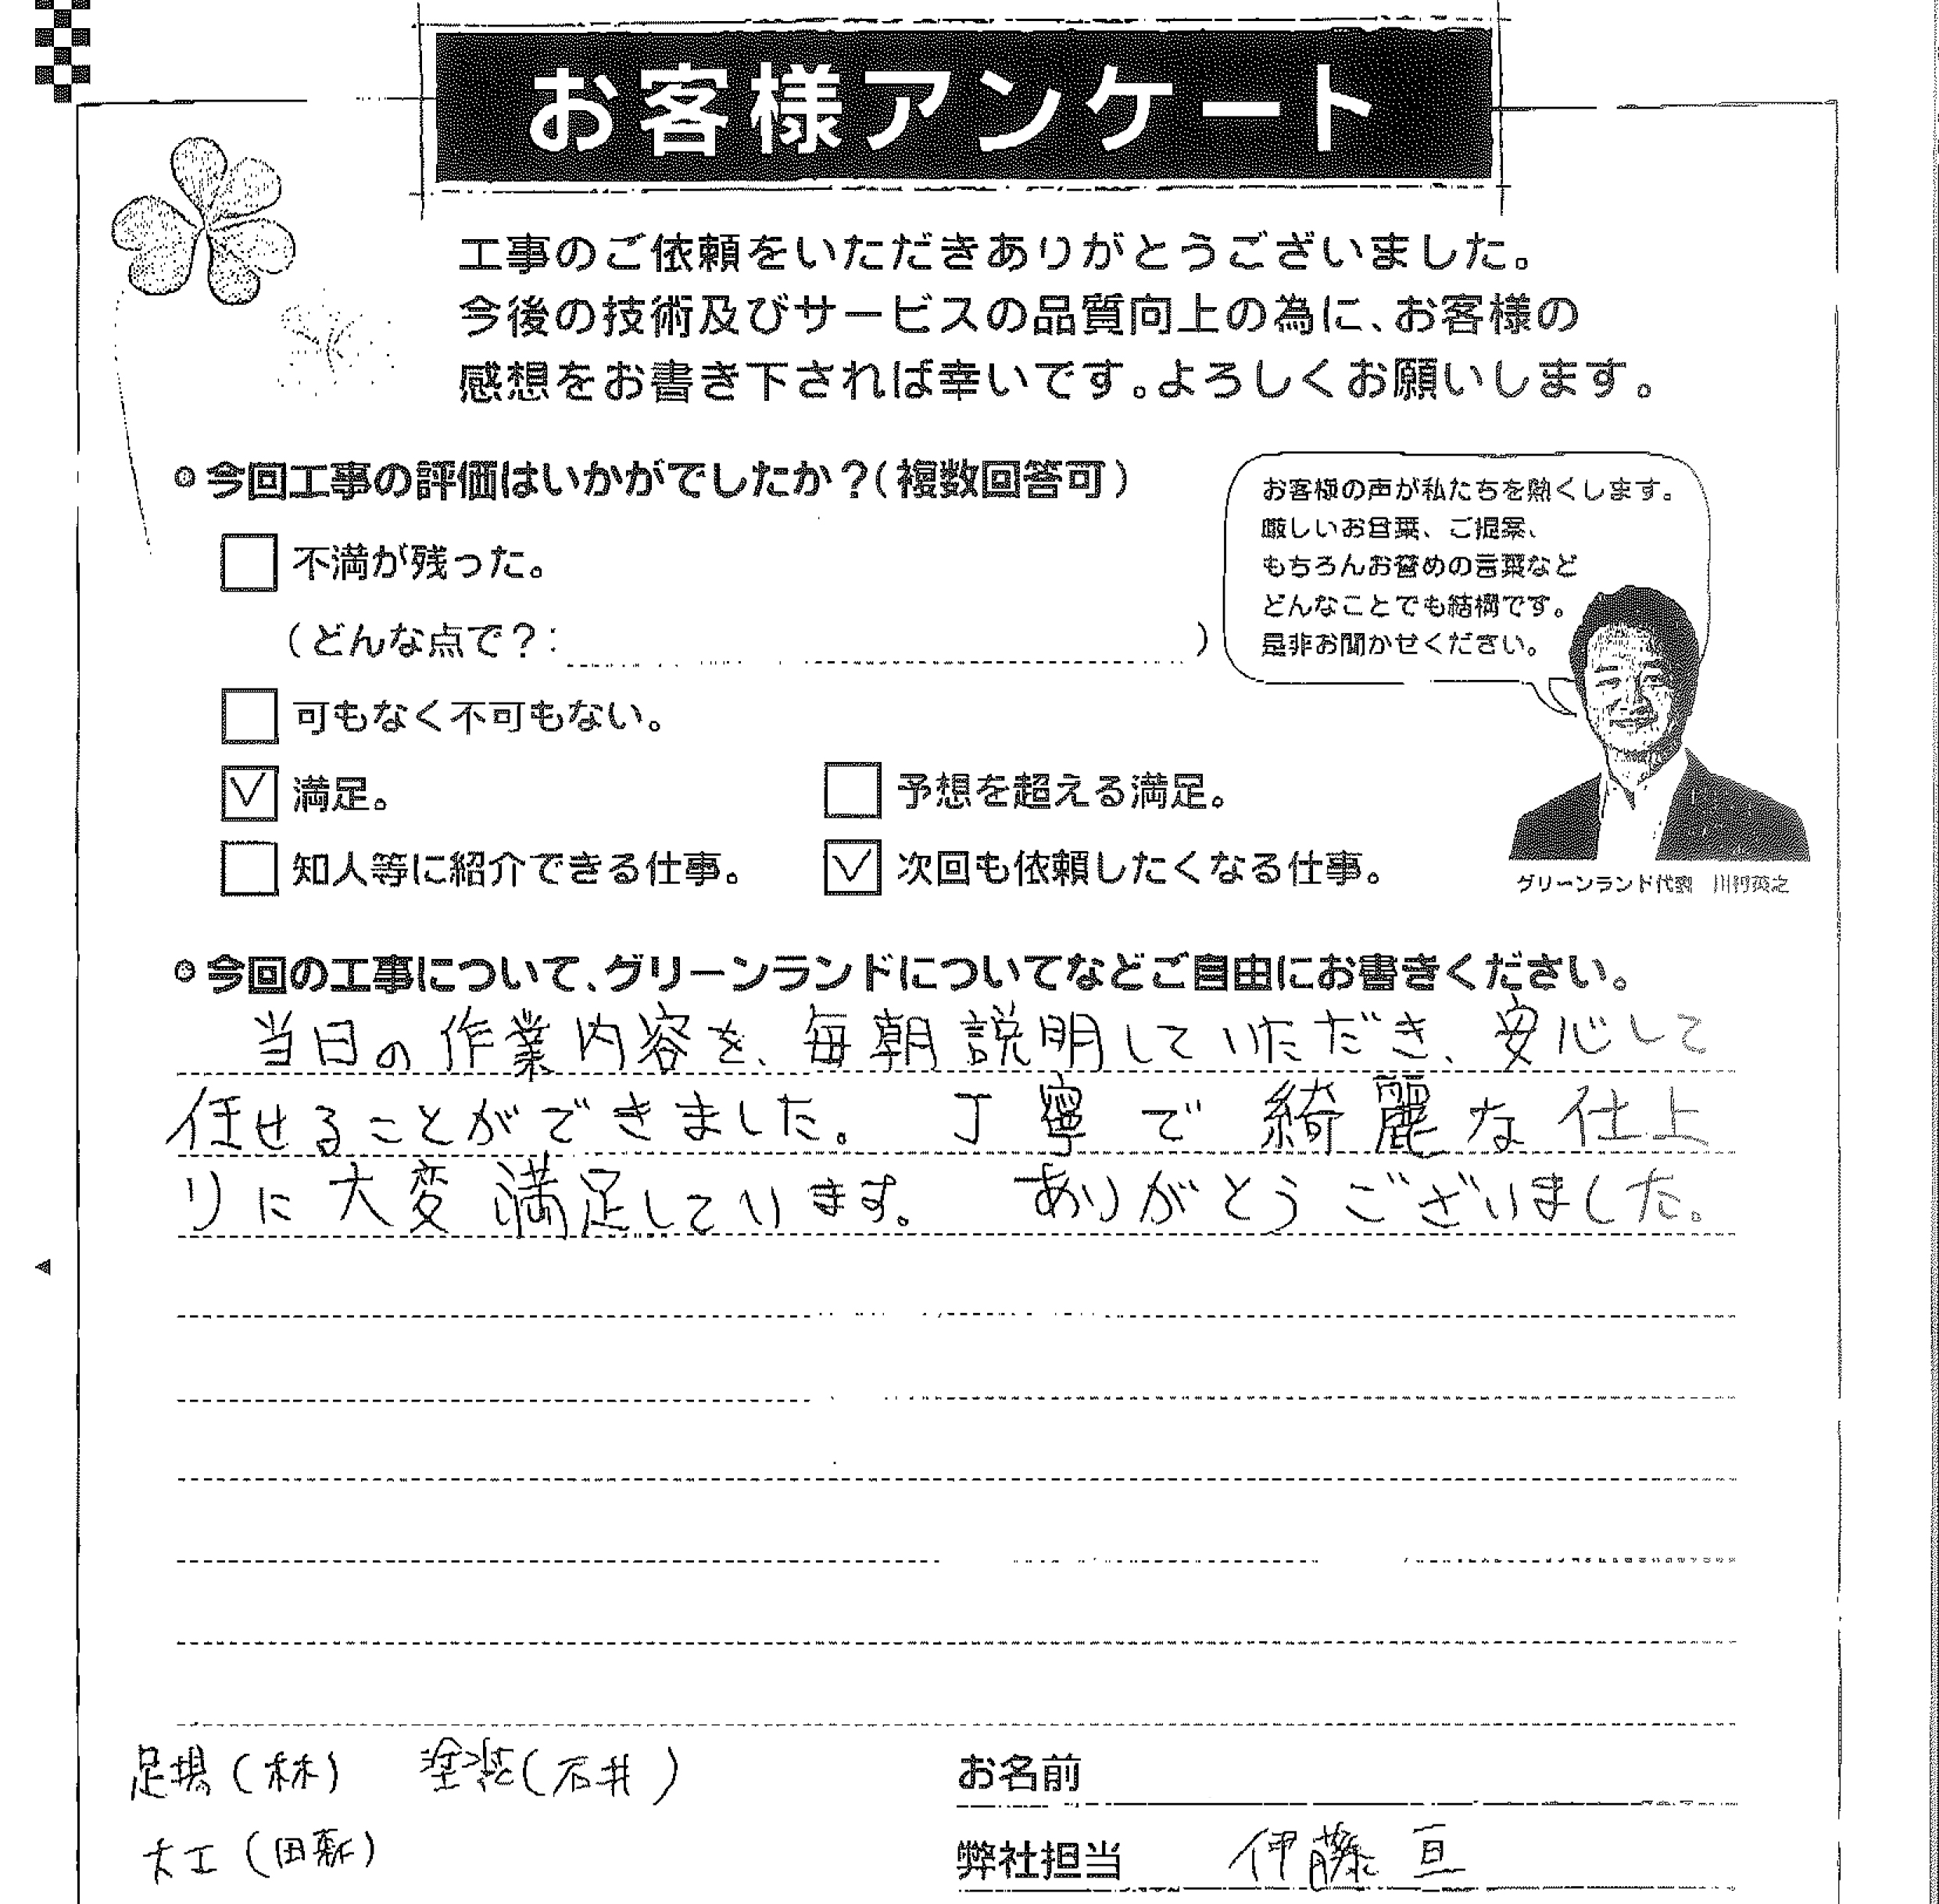 お客様アンケート
工事のご依頼をいただきありがとうございました。
今後の技術及びサービスの品質向上の為に、お客様の
感想をお書き下されば幸いです。よろしくお願いします。
今回工事の評価はいかがでしたか？(複数回答可)
お客様の声が私たちを熱くします。
厳しいお言葉、ご提案、
もちろんお誉めの言葉など
どんなことでも結構です。
是非お聞かせください。
不満が残った。
(どんな点で？: )
可もなく不可もない。
満足。 予想を超える満足。
知人等に紹介できる仕事。 次回も依頼したくなる仕事。
グリーンランド代表 川村英之
今回の工事について、グリーンランドについてなどご自由にお書きください。
当日の作業内容を、毎朝説明していただき、安心して
任せることができました。 丁寧で綺麗な仕上
りに大変満足しています。 ありがとうございました。
足場(林) 塗装(石井)
お名前
大工(田新)
弊社担当 伊藤 亘